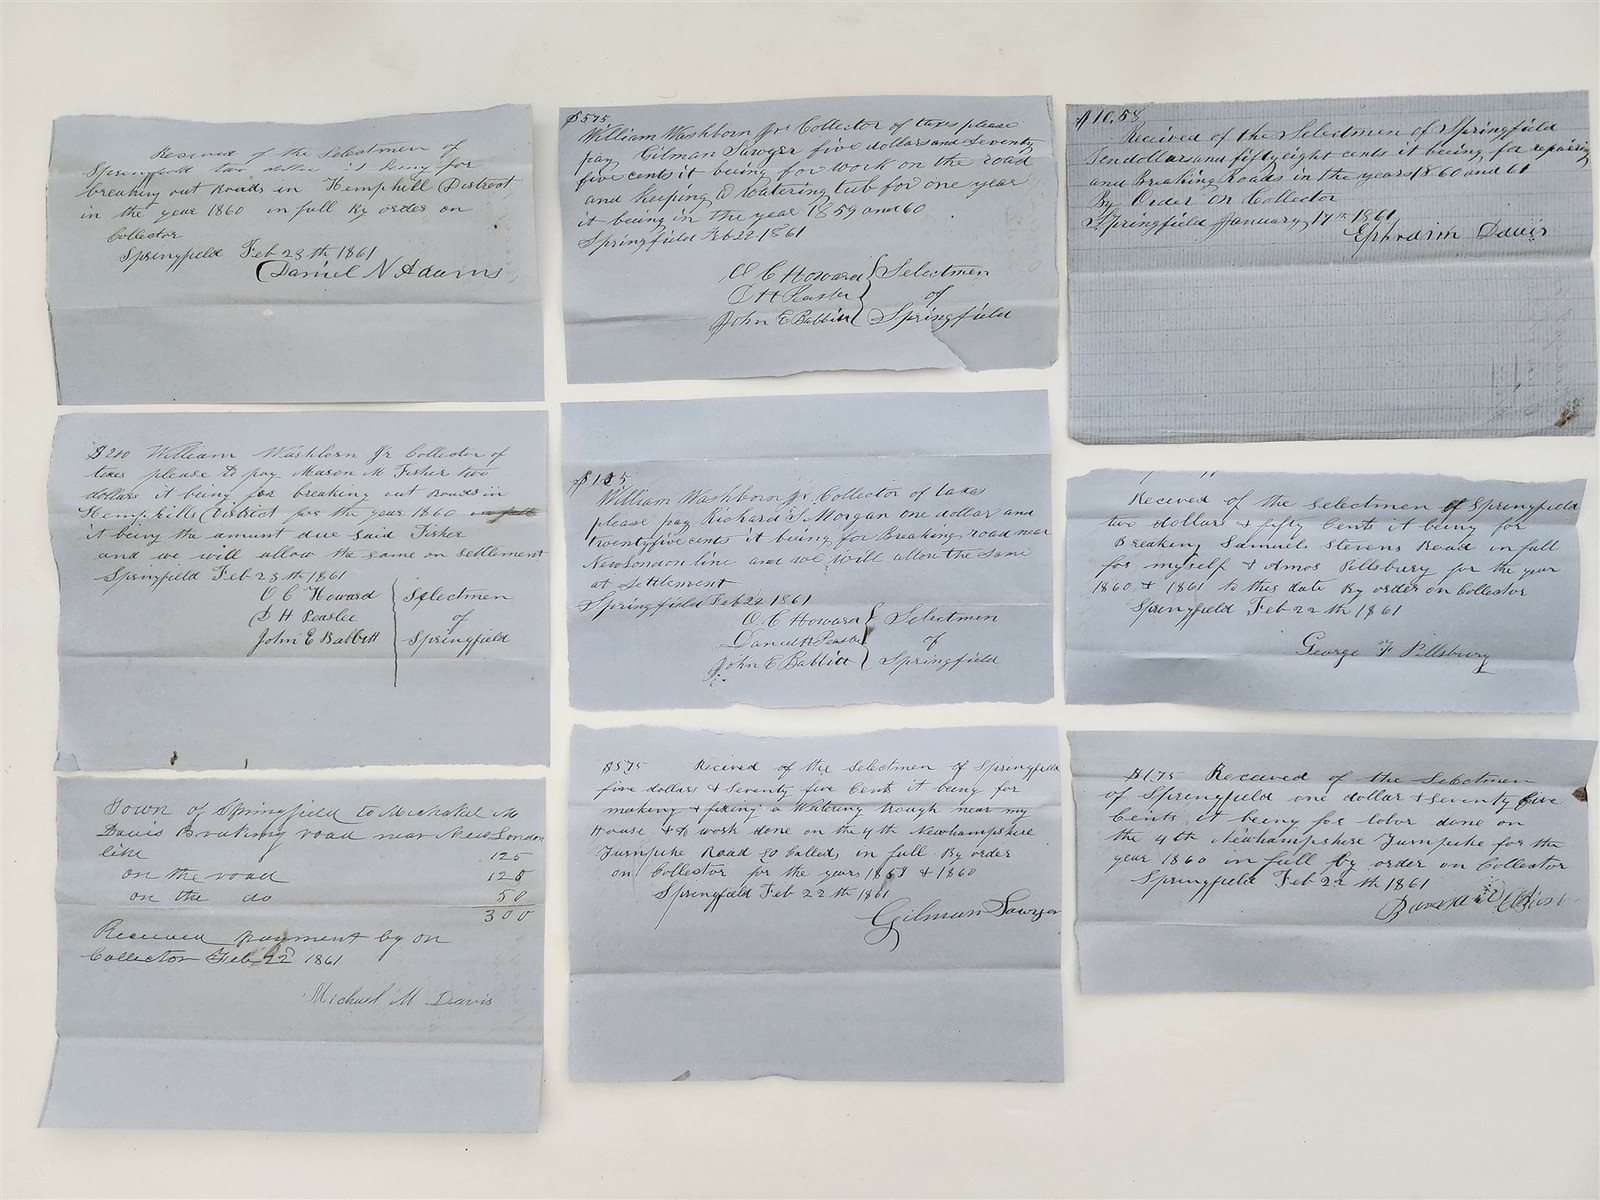 Received of the Selectmen of
Springfield two dollars it being for
breaking out Roads in Hemphill District
in the year 1860 in full By order on
Collector
Springfield Feb 23th 1861
Daniel N Adams
$2.00 William Washborn Jr Collector of
taxes please to pay Mason M Fisher two
dollars it being for breaking out Roads in
Hemphills District for the year 1860 in full
it being the amunt due said Fisher
and we will allow the same on settlement
Springfield Feb 23th 1861
O C Howard Selectmen
D H Peaslee of
John E Babbitt Springfield
Town of Springfield to Michakel M
Davis Breaking road near New London
like 125
on the road 125
on the do 50
300
Received payment by on
Collector Feb 22 1861
Michael M Davis
$575
William Washborn Jr Collector of taxes please
pay Gilman Sawyer five dollars and seventy
five cents it being for work on the road
and keeping a watering tub for one year
it being in the year 1859 and 60
Springfield Feb 22 1861
O C Howard Selectmen
D H Peaslee of
John E Babbitt Springfield
$125
William Washborn Jr Collector of taxes
please pay Richard S Morgan one dollar and
twentyfive cents it being for Breaking road near
New London line and we will allow the same
at settlement
Springfield Feb 22 1861
O. C Howard Selectmen
Daniel H Peaslee of
John E Babbitt Springfield
$5.75 Recived of the Selectmen of Springfield
five dollars & seventy five Cents it being for
making & fixing a Watering trough near my
House & to work done on the 4th Newhampshire
Turnpike Road so Called, in full By order
on Collector for the years 1859 & 1860
Springfield Feb 22th 1861
Gilman Sawyer
$10.58
Received of the Selectmen of Springfield
Ten dollars and fiftyeight cents it being for repairing
and Breaking Roads in the years 1860 and 61
By Order on Collector
Springfield January 17th 1861
Ephraim Davis
Received of the Selectmen of Springfield
two dollars & fifty Cents it being for
Breaking Samuels Stevens Road in full
for myself & Amos Pillsbury for the year
1860 & 1861 to this date By order on Collector
Springfield Feb 22th 1861
George F Pillsbury
$1.75 Received of the Selectmen
of Springfield one dollar & seventy five
Cents it being for labor done on
the 4th Newhampshire Turnpike for the
year 1860 in full by order on Collector
Springfield Feb 22th 1861